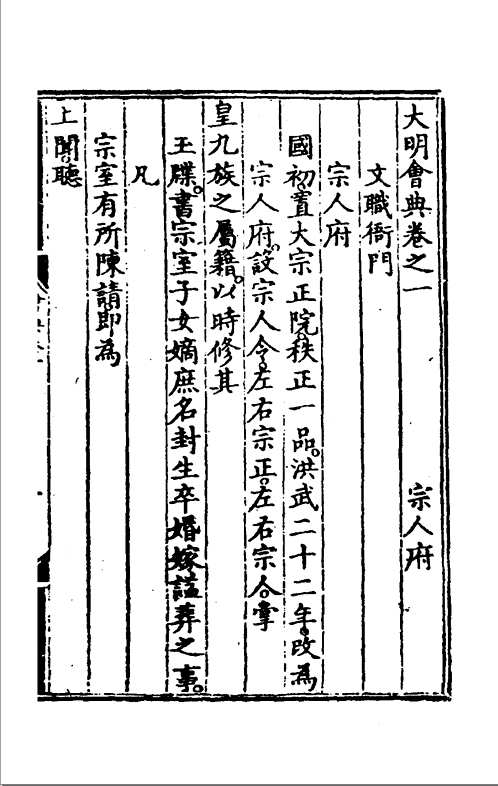 大明會典卷之一　宗人府
文職衙門
宗人府
國初。置大宗正院。秩正一品。洪武二十二年。改為
宗人府。設宗人令。左右宗正。左右宗人。掌
皇九族之屬籍。以時修其
玉牒。書宗室子女嫡庶名封生卒婚嫁謚葬之事。
凡
宗室有所陳請。即為
上聞。聽